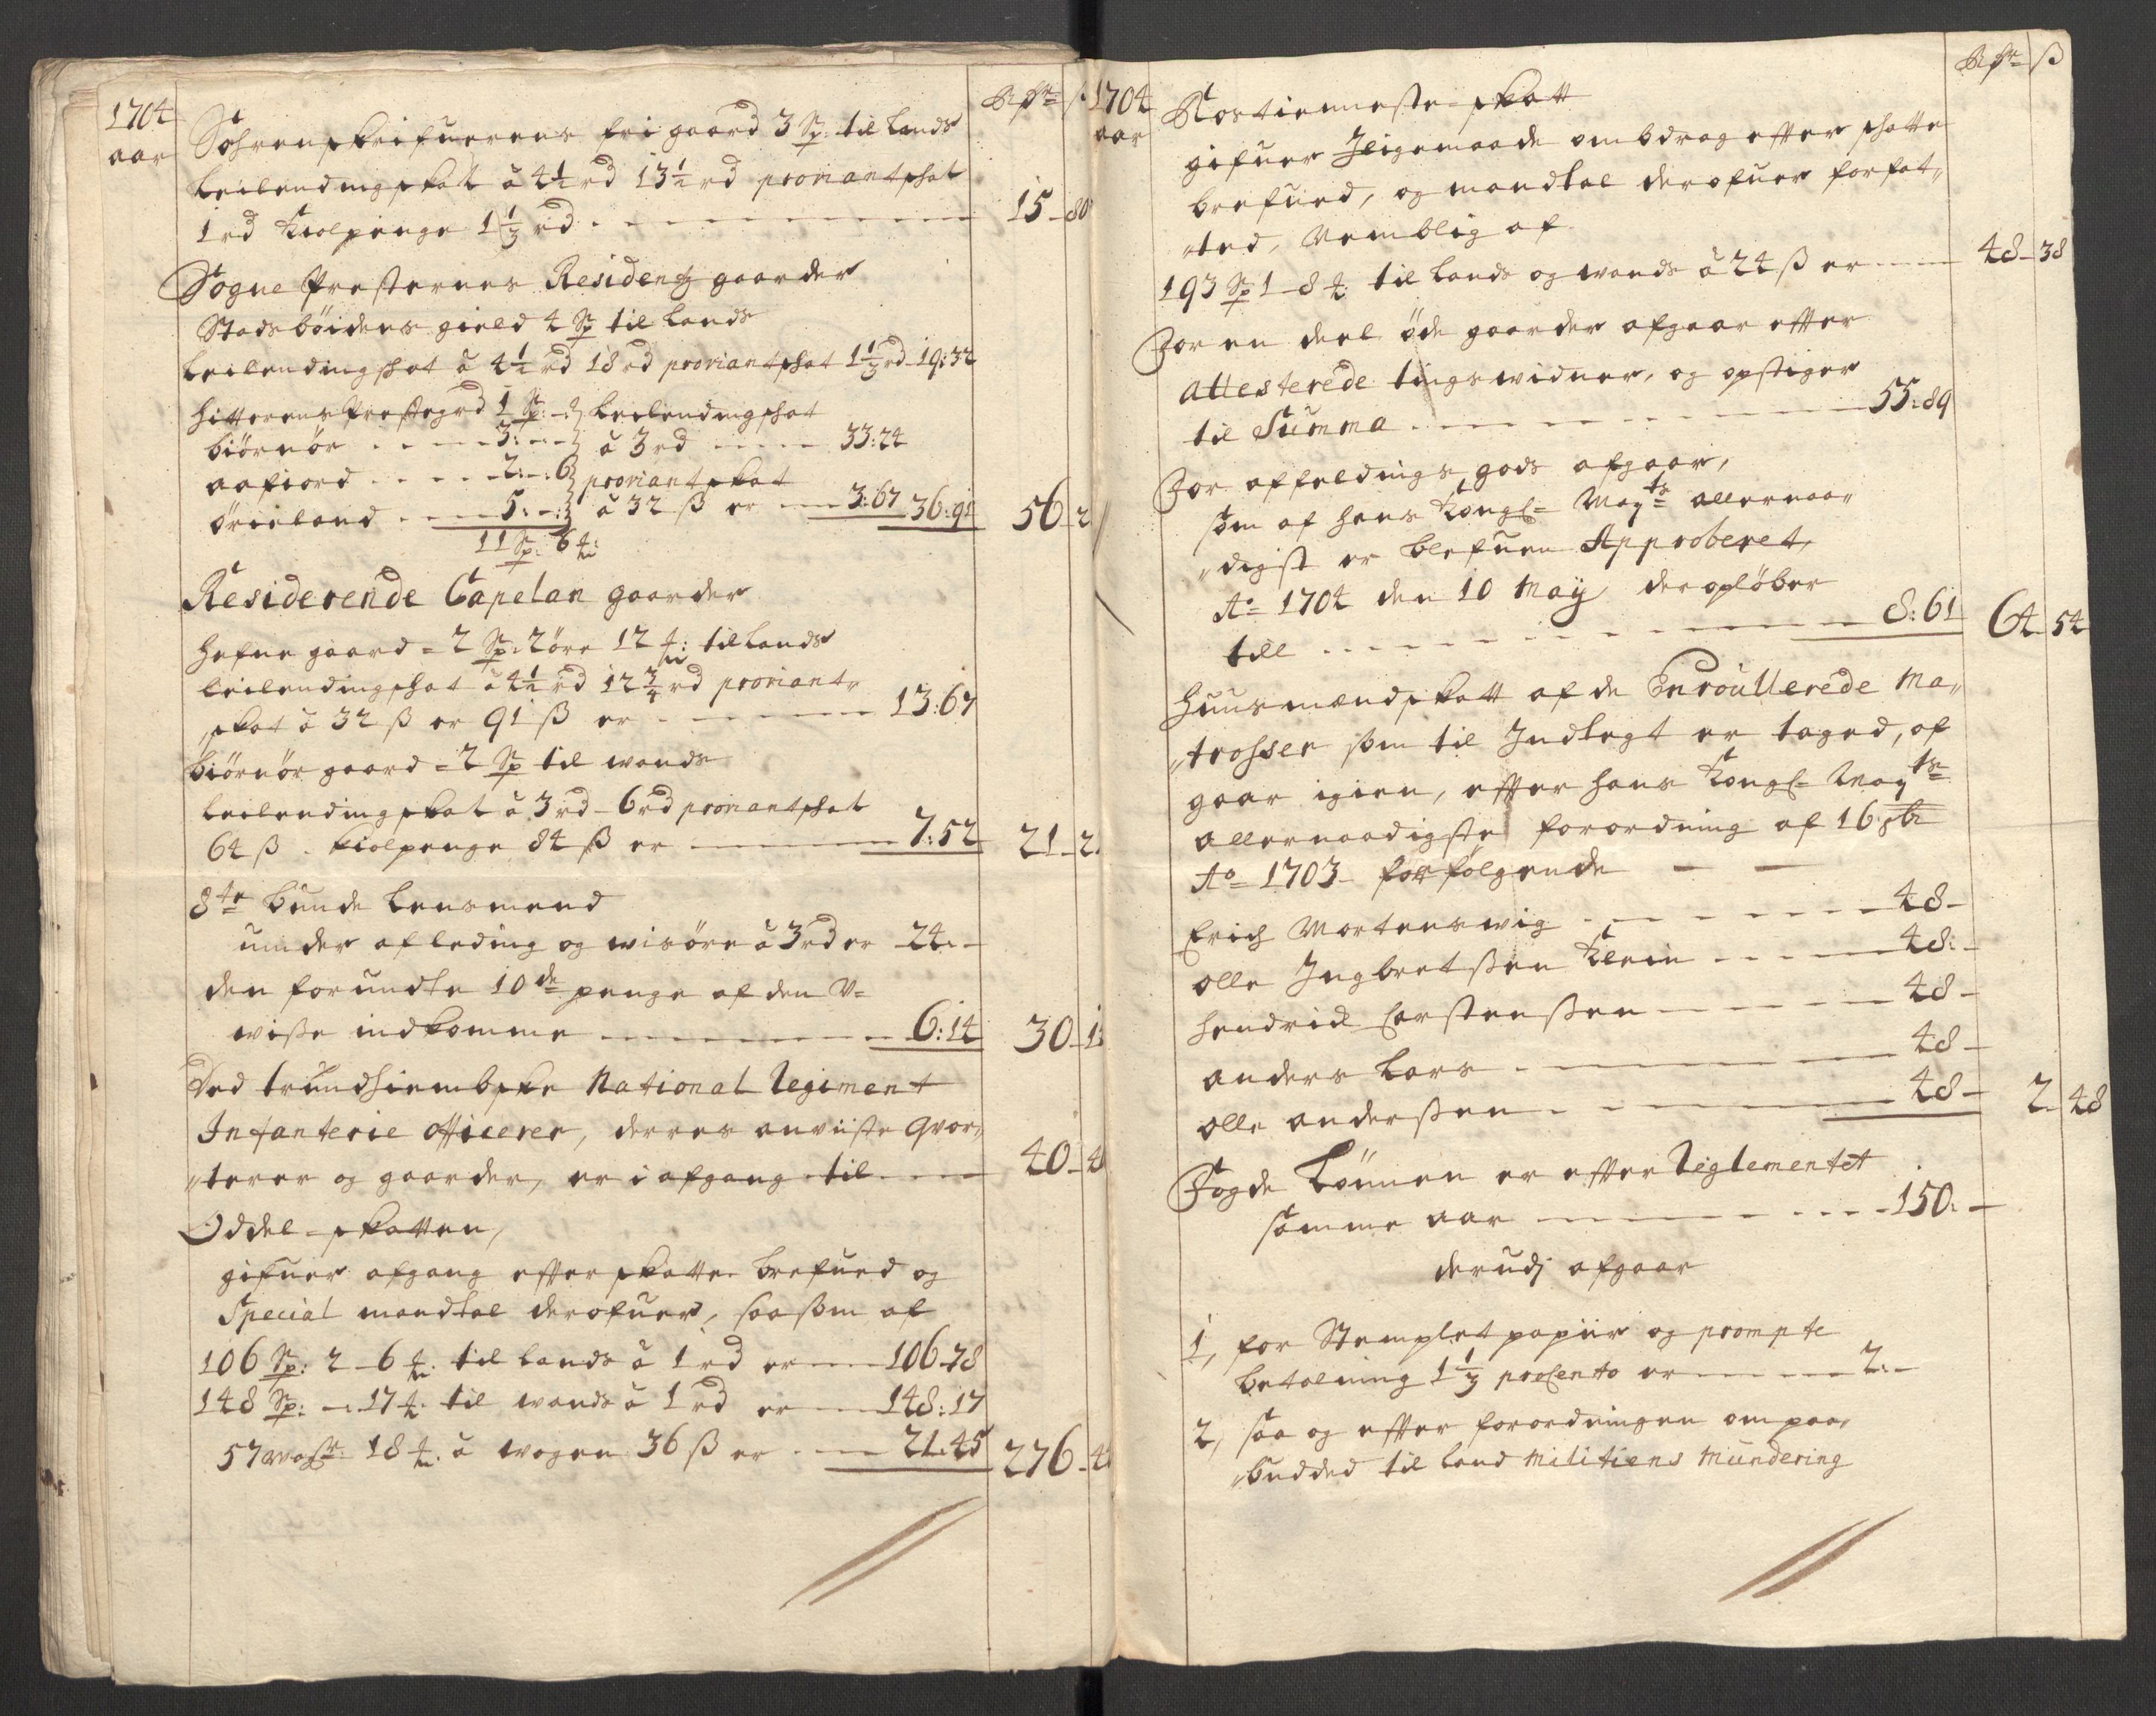 1704
aar
Rdr ß
Sohrenskrifuerens fri gaard 3 Sp: til lands
Leilendingskat à 4½ rd 13½ rd proviantskat
1 rd Kiolpenge 1⅓ rd 15-80
Sogne Presternes Residentz gaarder
Stadsbøidens gield 4 Sp til lands
Leilendingskat à 4½ rd 18 rd proviantskat 1⅓ rd 19:32
Hitterens Prestegrd 1 Sp: - Leilendingskat
Biørnør 3:-:- à 3 rd 33:24
Aafiord 2:-:6 proviantskat
Ørieland 5:-: à 32 ß er 3:67 36:91 56-2
11 Sp: 6
Residerende Capelan gaarder
Hefne gaard = 2 Sp: 2 øre 12 til lands
Leilendingskat à 4½ rd 12¾ rd proviant„
„skat à 32 ß er 91 ß er 13:67
Biørnør gaard = 2 Sp til wands
Leilendingskat à 3 rd - 6 rd proviantskat
64 ß. Kiolpenge 84 ß er 7:52 21-2
8te bunde Lensmend
under afleding og wisøre à 3 rd er 24.-
den forundte 10de penge af den V=
wisse indkomme 6:14 30-1
Ded trundhiembske National Regiment
Infanterie officerer, derres anviiste Qvar„
„terer og gaarder, er i afgang til 40-4
Oddel-skatten,
gifuer afgang effter skatte brefued og
Special mandtal derofuer, saasom af
106 Sp: 2-6 til lands à 1 rd er 106-78
148 Sp: -:17 til wands à 1 rd er 148:17
57 wogr: 18 à wogen 36 ß er 21:45 276-4
1704
aar
Rdr ß
Rostienneste-skatt
gifuer Jligemaade ombdrag effter skatte
brefued, og mandtal derofuer forfat„
„ted, Nemblig af
193 Sp 1-8 til lands og wands à 24 ß er 48-38
For en deel øde gaarder afgaar effter
attesterede tingswidner, og opstiger
til Summa 55:89
For affeldings gods afgaar,
som af hans Kongl= Mayts allernaa„
„digst er blefuen Approberet,
Ao= 1704 den 10 May der opløber
till 8:61 64-54
Huusmendskatt af de Enroullerede Ma„
„trosser som til Jndlegt er taged, af
gaar igien, effter hans Kongl= Mayts
allernaadigste forordning af 16
Ao= 1703- for følgende
Erich Mortenswig 48-
Olle Jngbretssen Klein 48:-
Hendrick Carstenssen 48-
Anders Lars 48-
Olle Anderssen 48- 2-48
Fogde Lønnen er effter Reglementet
samme aar 150.-
derudj afgaar
1, for Stemplet papiir og prompte
betalning 1⅓ procento er 2:-
2, saa og effter forordningen om paa„
„budded til land Militiens Mundering